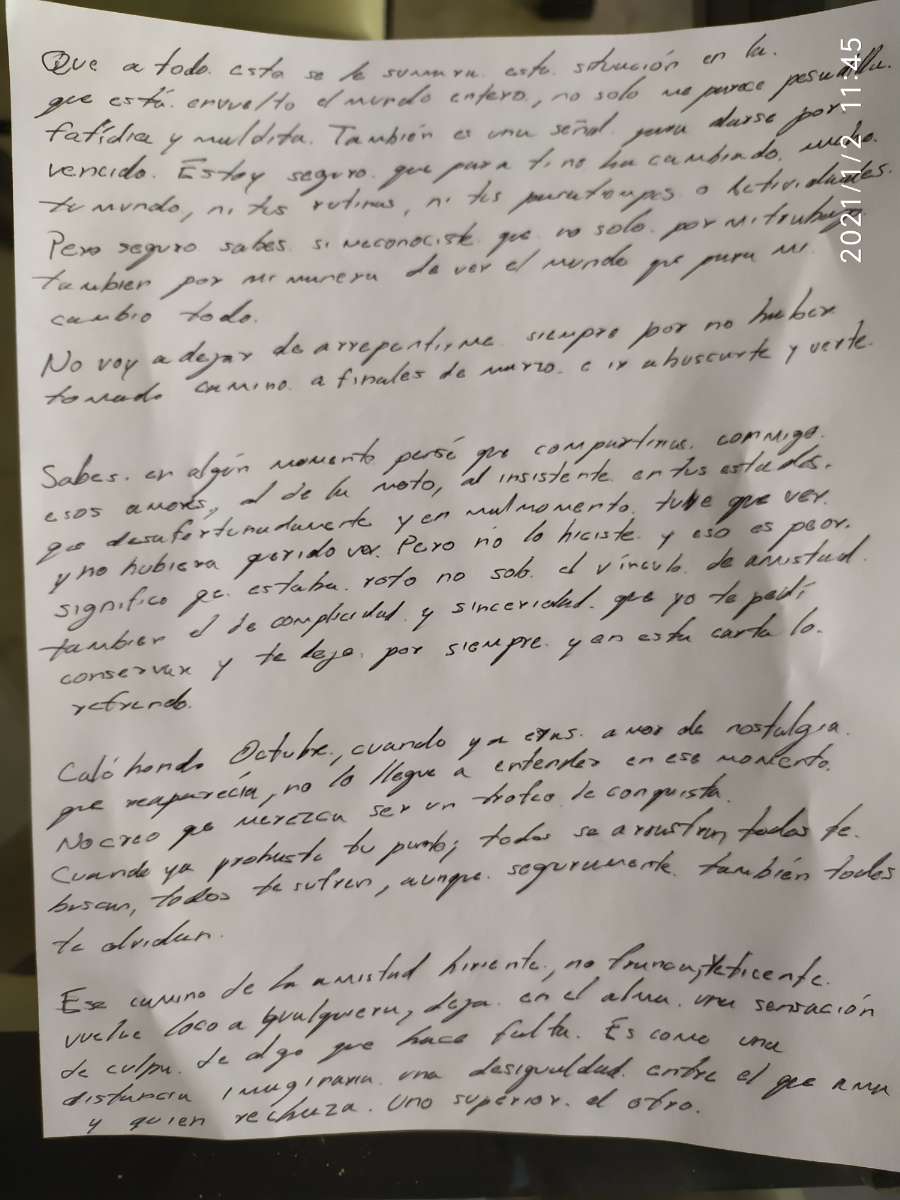 Que a todo esto se le sumara esta situación en la
que está envuelto el mundo entero, no solo me parece pesadilla
fatídica y maldita. También es una señal para darse por
vencido. Estoy seguro que para ti no ha cambiado mucho
tu mundo, ni tus rutinas, ni tus o actividades.
Pero seguro sabes si me conociste que no solo por mi trabajo
tambien por mi manera de ver el mundo que para mi
cambio todo.
No voy a dejar de arrepentirme siempre por no haber
tomado camino a finales de marzo e ir a buscarte y verte.
Sabes en algún momento pensé que compartirias conmigo
esos amores, el de la moto, al insistente en tus estados.
que desafortunadamente y en mal momento tube que ver
y no hubiera querido ver. Pero no lo hiciste y eso es peor.
significo qe estaba roto no solo el vínculo de amistad
tambien el de complicidad y sinceridad que yo te pedí
conservar y te deje por siempre y en esta carta lo
refrendo.
Caló hondo Octubre, cuando ya eras amor de nostalgia
que reaparecía, no lo llegue a entender en ese momento.
No creo qe merezca ser un trofeo de conquista.
Cuando ya probaste tu punto; todos se arrastran, todos te
buscan, todos te sufren, aunque seguramente también todos
te olvidan.
Ese camino de la amistad hiriente, no franca,
vuelve loco a qualquiera, deja en el alma una sensación
de culpa de algo que hace falta. Es como una
distancia imaginaria una desigualdad entre el que ama
y quien rechaza. Uno superior al otro.
2021/1/2 11:45